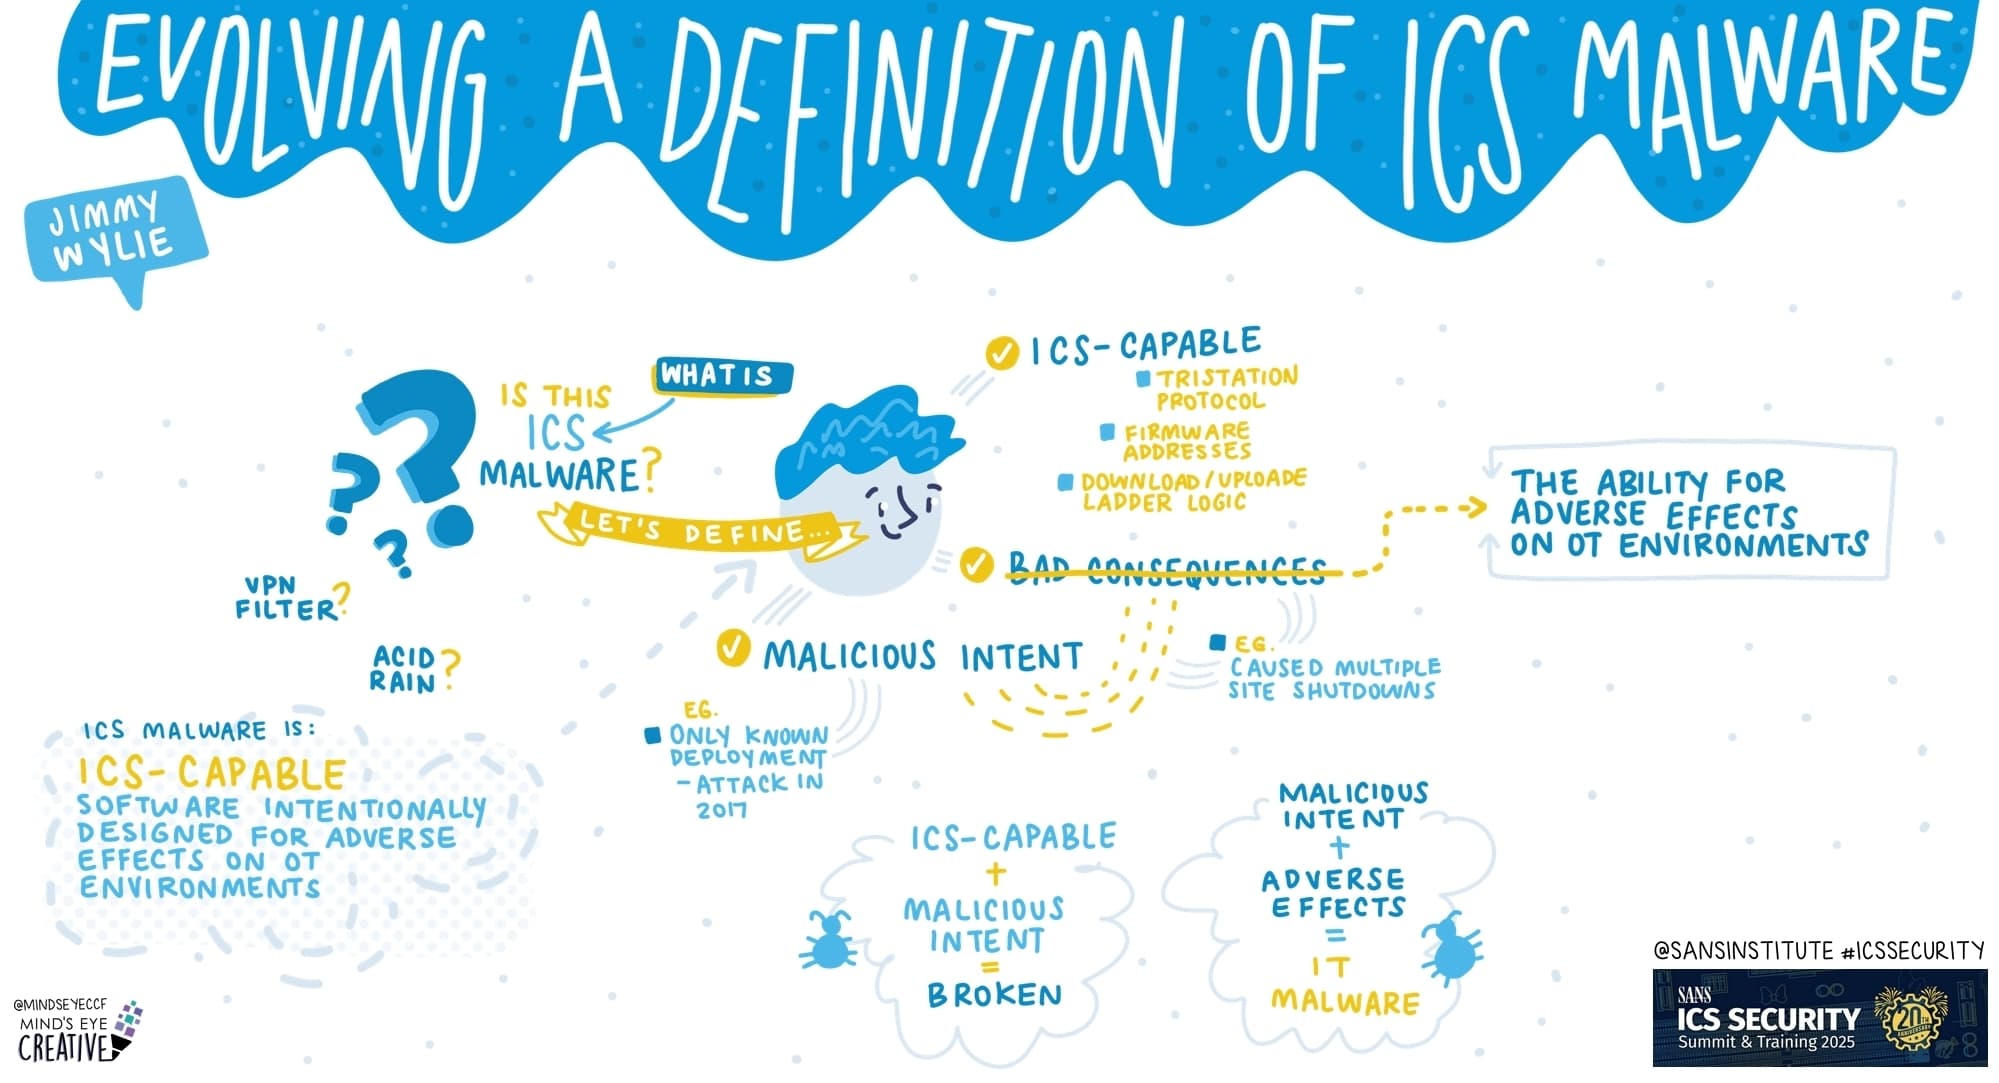 EVOLVING A DEFINITION OF ICS MALWARE
JIMMY
WYLIE
WHAT IS
IS THIS
ICS
MALWARE?
LET'S DEFINE...
VPN
FILTER?
ACID
RAIN?
ICS-CAPABLE
TRISTATION
PROTOCOL
FIRMWARE
ADDRESSES
DOWNLOAD/UPLOADE
LADDER LOGIC
BAD CONSEQUENCES
THE ABILITY FOR
ADVERSE EFFECTS
ON OT ENVIRONMENTS
EG.
CAUSED MULTIPLE
SITE SHUTDOWNS
MALICIOUS INTENT
EG.
ONLY KNOWN
DEPLOYMENT
- ATTACK IN
2017
ICS MALWARE IS:
ICS-CAPABLE
SOFTWARE INTENTIONALLY
DESIGNED FOR ADVERSE
EFFECTS ON OT
ENVIRONMENTS
ICS-CAPABLE
+
MALICIOUS
INTENT
=
BROKEN
MALICIOUS
INTENT
+
ADVERSE
EFFECTS
=
IT
MALWARE
@MINDSEYECCF
MIND'S EYE
CREATIVE
@SANSINSTITUTE #ICSSECURITY
SANS
ICS SECURITY
Summit & Training 2025
20TH
ANNIVERSARY